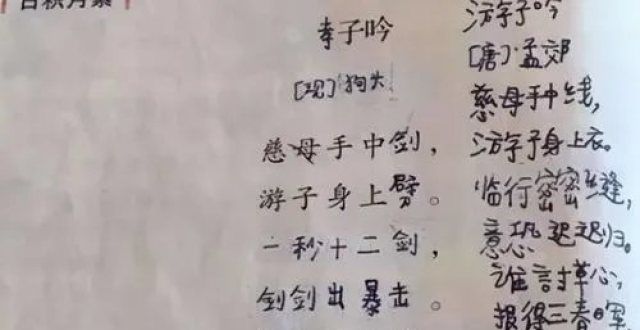 日积月累
李子吟
[现]狗头
慈母手中剑，
游子身上劈。
一秒十二剑，
剑剑出暴击。
游子吟
[唐]·孟郊
慈母手中线，
游子身上衣。
临行密密缝，
意恐迟迟归。
谁討草心，
报得三春晖